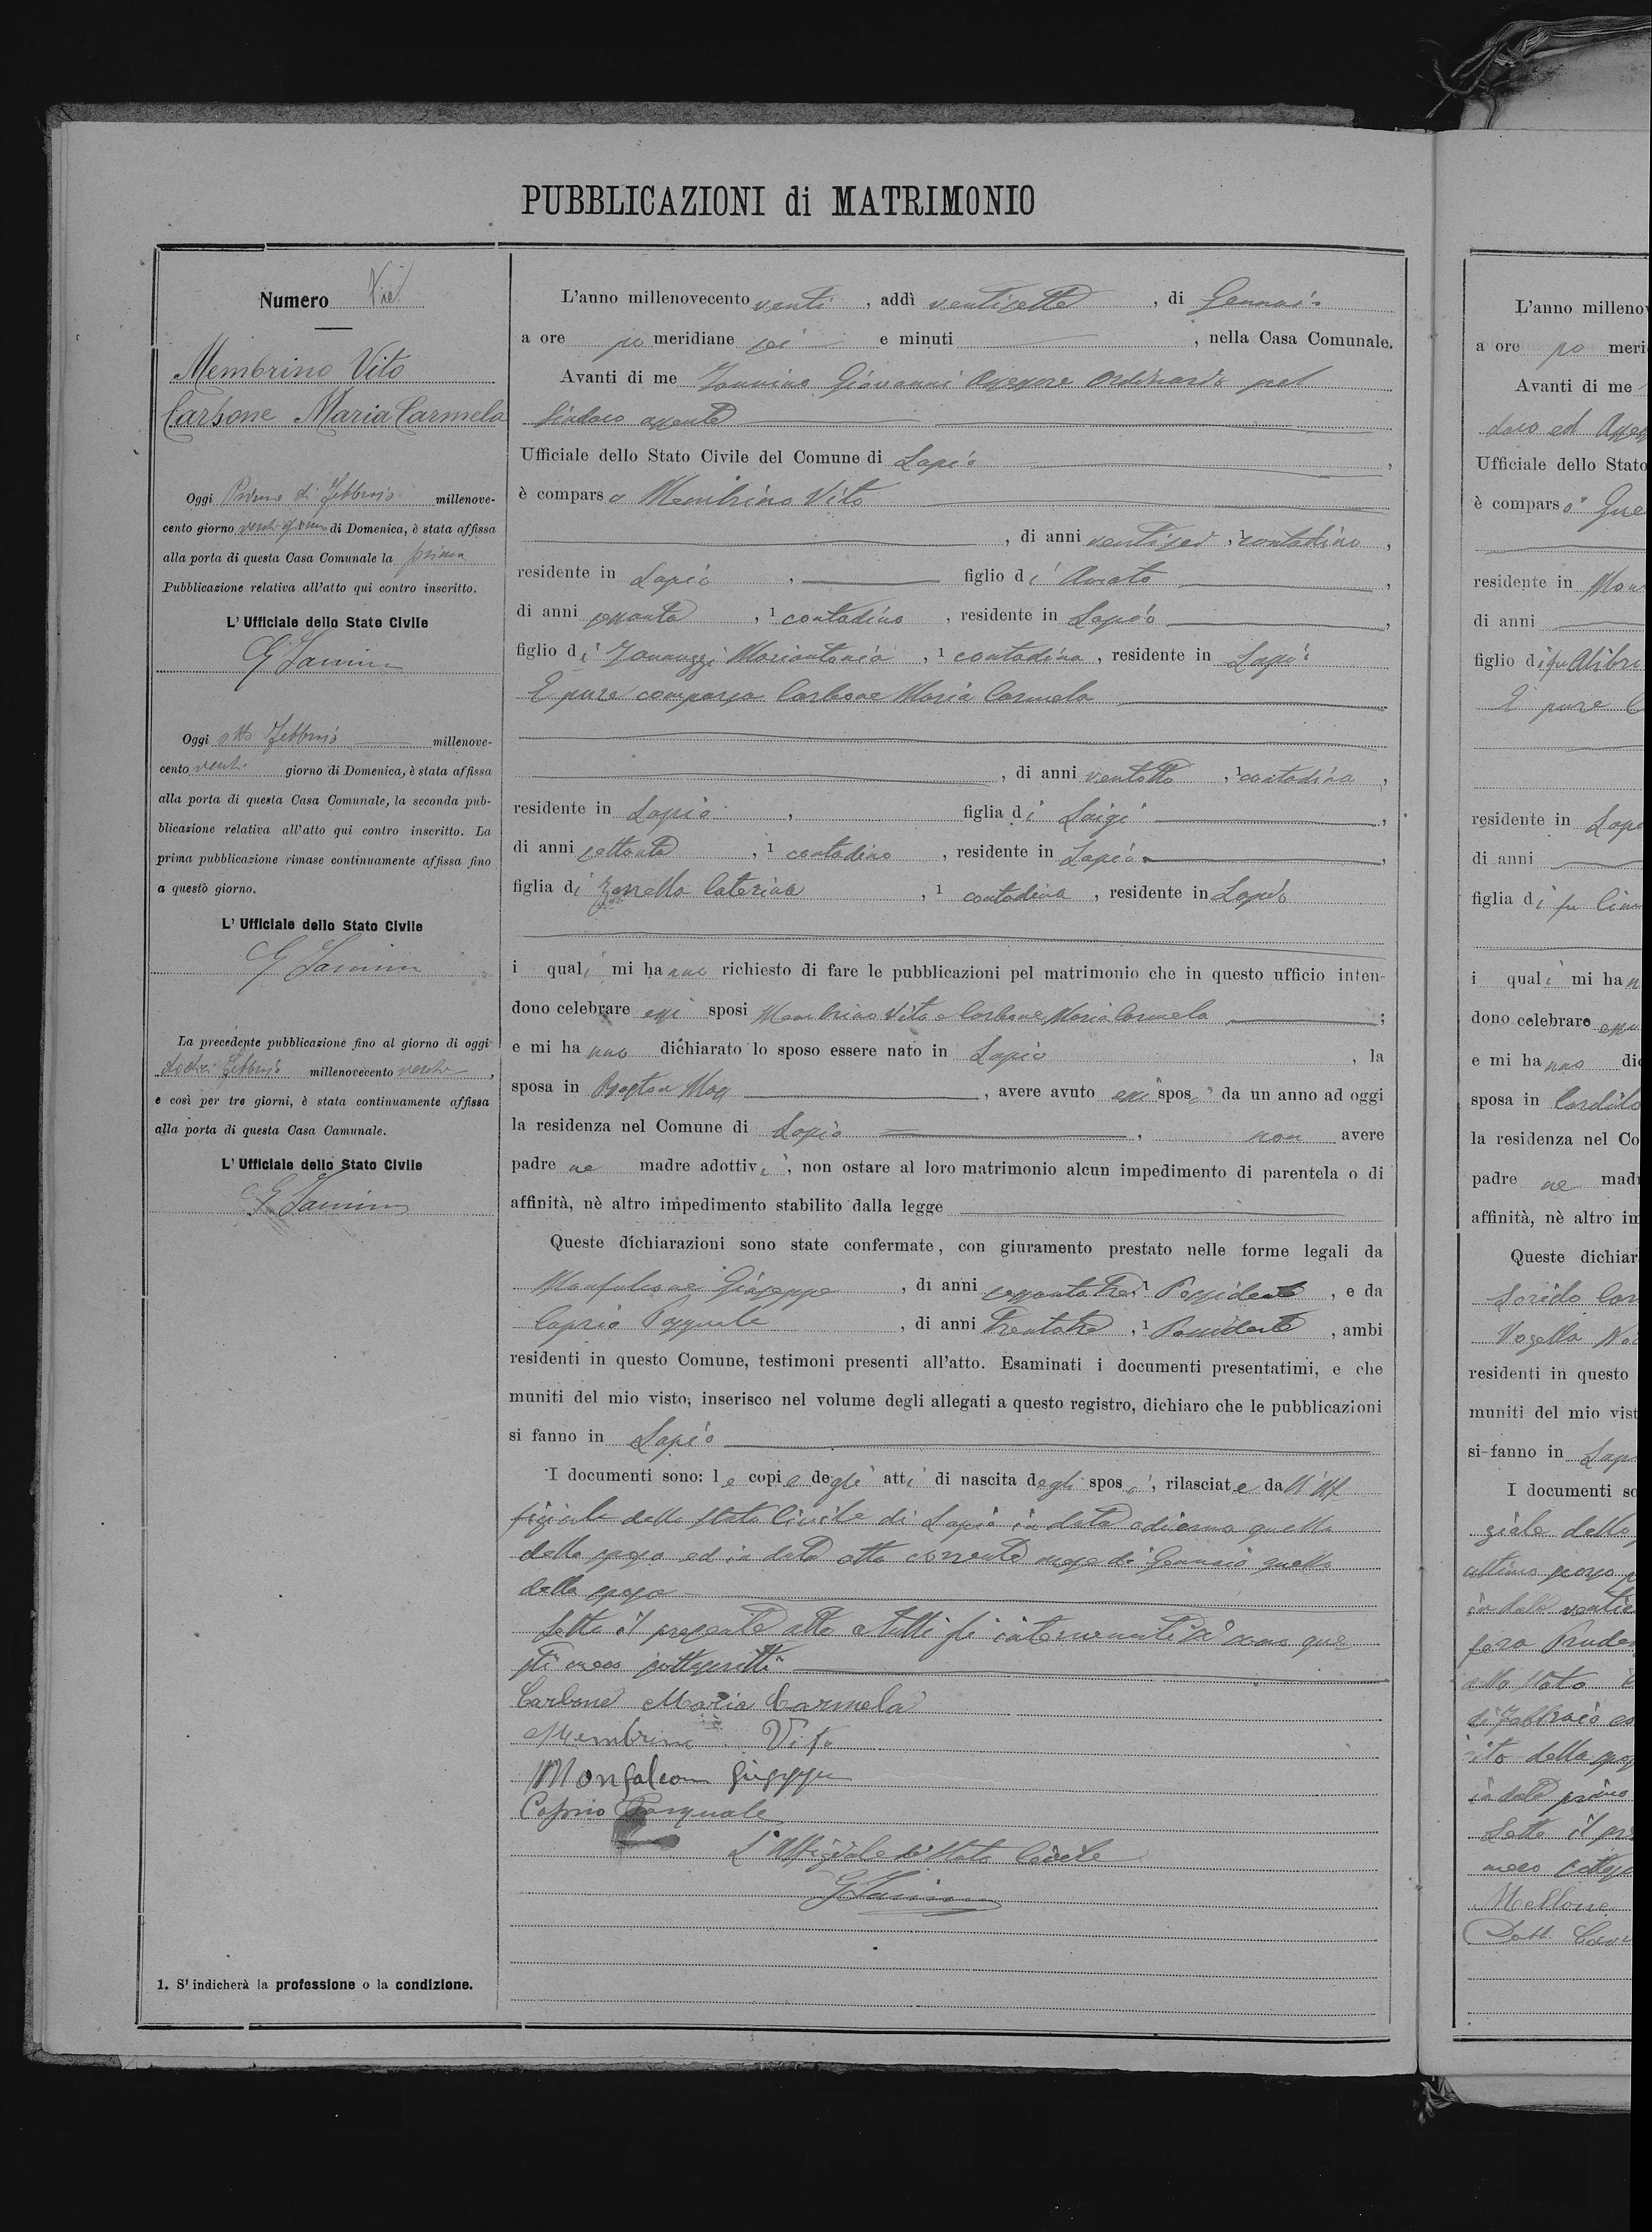 PUBBLICAZIONI di MATRIMONIO
Numero
Membrino Vito
Carbone Maria Carmela
Oggi Primo di Febbraio millenove-
cento giorno venti giorno di Domenica, è stata affissa
alla porta di questa Casa Comunale la prima
Pubblicazione relativa all'atto qui contro inscritto.
L'Ufficiale dello Stato Civile
Oggi otto Febbraio millenove-
cento venti giorno di Domenica, è stata affissa
alla porta di questa Casa Comunale, la seconda pub-
blicazione relativa all'atto qui contro inscritto. La
prima pubblicazione rimase continuamente affissa fino
a questo giorno.
L'Ufficiale dello Stato Civile
La precedente pubblicazione fino al giorno di oggi
dodici Febbraio millenovecento venti,
e così per tre giorni, è stata continuamente affissa
alla porta di questa Casa Camunale.
L'Ufficiale dello Stato Civile
1. S'indicherà la professione o la condizione.
L'anno millenovecento venti, addì ventisette, di Gennaio
a ore po meridiane sei e minuti , nella Casa Comunale.
Avanti di me Giovanni Assessore Ordinario pel
Sindaco assente
Ufficiale dello Stato Civile del Comune di Lapio,
è comparso Membrino Vito
, di anni ventisei, 1 contadino,
residente in Lapio, figlio di Amato,
di anni sessanta, 1 contadino, residente in Lapio,
figlio di Mariantonia, 1 contadina, residente in Lapio
E pure comparsa Carbone Maria Carmela
, di anni ventotto, 1 contadina,
residente in Lapio, figlia di Luigi,
di anni settanta, 1 contadino, residente in Lapio,
figlia di Caterina, 1 contadina, residente in Lapio
i quali mi hanno richiesto di fare le pubblicazioni pel matrimonio che in questo ufficio inten-
dono celebrare essi sposi Membrino Vito e Carbone Maria Carmela;
e mi hanno dichiarato lo sposo essere nato in Lapio, la
sposa in , avere avuto essi sposi da un anno ad oggi
la residenza nel Comune di Lapio, non avere
padre ne madre adottivi, non ostare al loro matrimonio alcun impedimento di parentela o di
affinità, nè altro impedimento stabilito dalla legge
Queste dichiarazioni sono state confermate, con giuramento prestato nelle forme legali da
Monfalcone Giuseppe, di anni sessantatre 1 Possidente, e da
Caprio Pasquale, di anni trentatre, 1 Possidente, ambi
residenti in questo Comune, testimoni presenti all'atto. Esaminati i documenti presentatimi, e che
muniti del mio visto, inserisco nel volume degli allegati a questo registro, dichiaro che le pubblicazioni
si fanno in Lapio
I documenti sono: le copie degli atti di nascita degli sposi, rilasciate dall'Uf
ficiale dello Stato Civile di Lapio in data odierna quella
dello sposo ed in data otto corrente mese di Gennaio quella
della sposa
Letto il presente atto a tutti gli intervenuti si sono que
sti meco sottoscritti
Carbone Maria Carmela
Membrino Vito
Monfalcone Giuseppe
Caprio Pasquale
L'Uffiziale di Stato Civile
L'anno milleno
a ore po meri
Avanti di me
Ufficiale dello Stato
è comparso
residente in
di anni
figlio di fu
E pure
residente in
di anni
figlia di fu
i quali mi ha
dono celebrare
e mi hanno di
sposa in
la residenza nel Co
padre ne mad
affinità, nè altro im
Queste dichiar
residenti in questo
muniti del mio vist
si fanno in
I documenti so